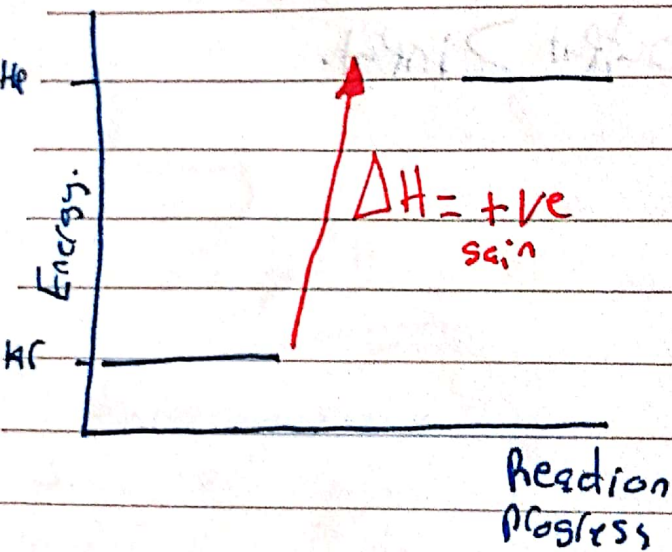 Hp
Energy.
ΔH = +ve
gain
Hr
Reaction
progress